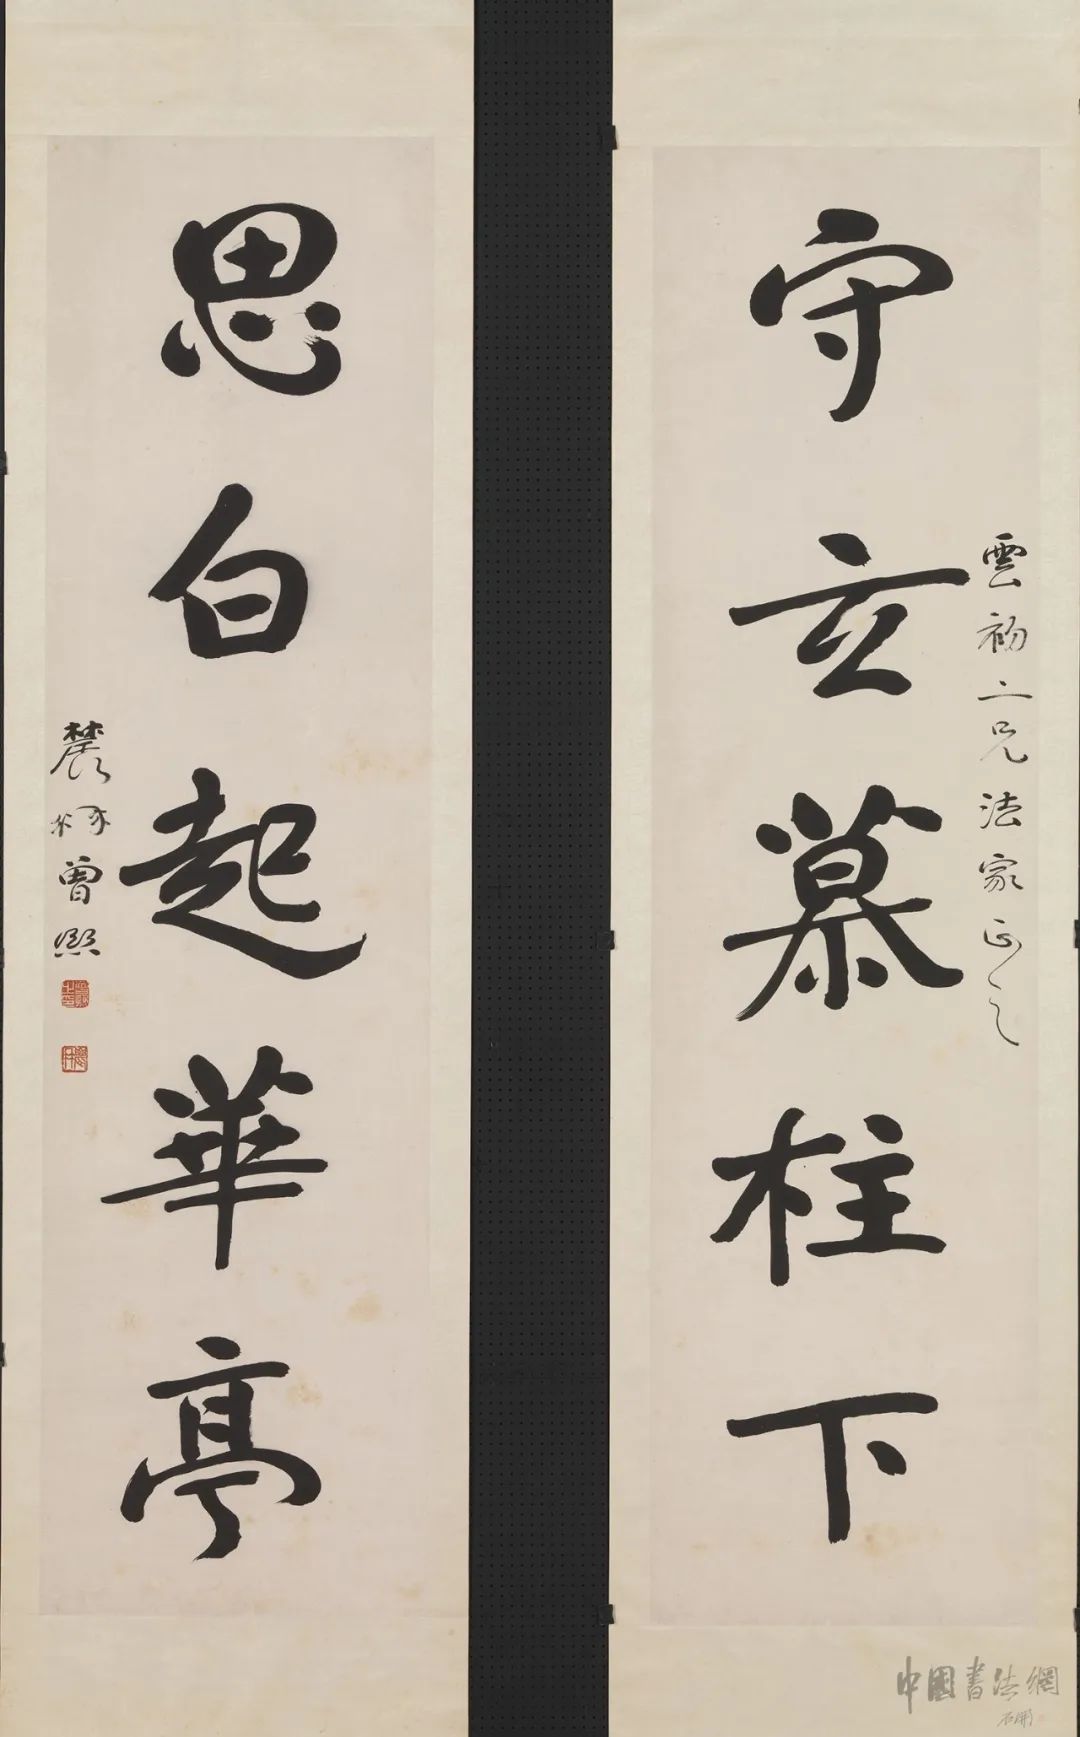 雲初二兄法家正之
守玄慕柱下
思白起華亭
農髯曾熙
中國書法網